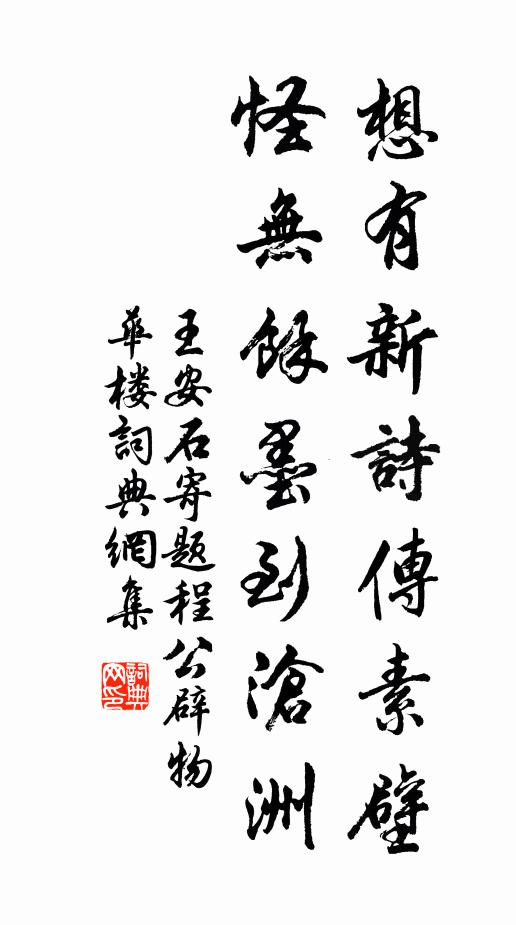 想有新詩傳素壁
怪無餘墨到滄洲
王安石寄題程公辟物
華樓詞典網集
詞典網印